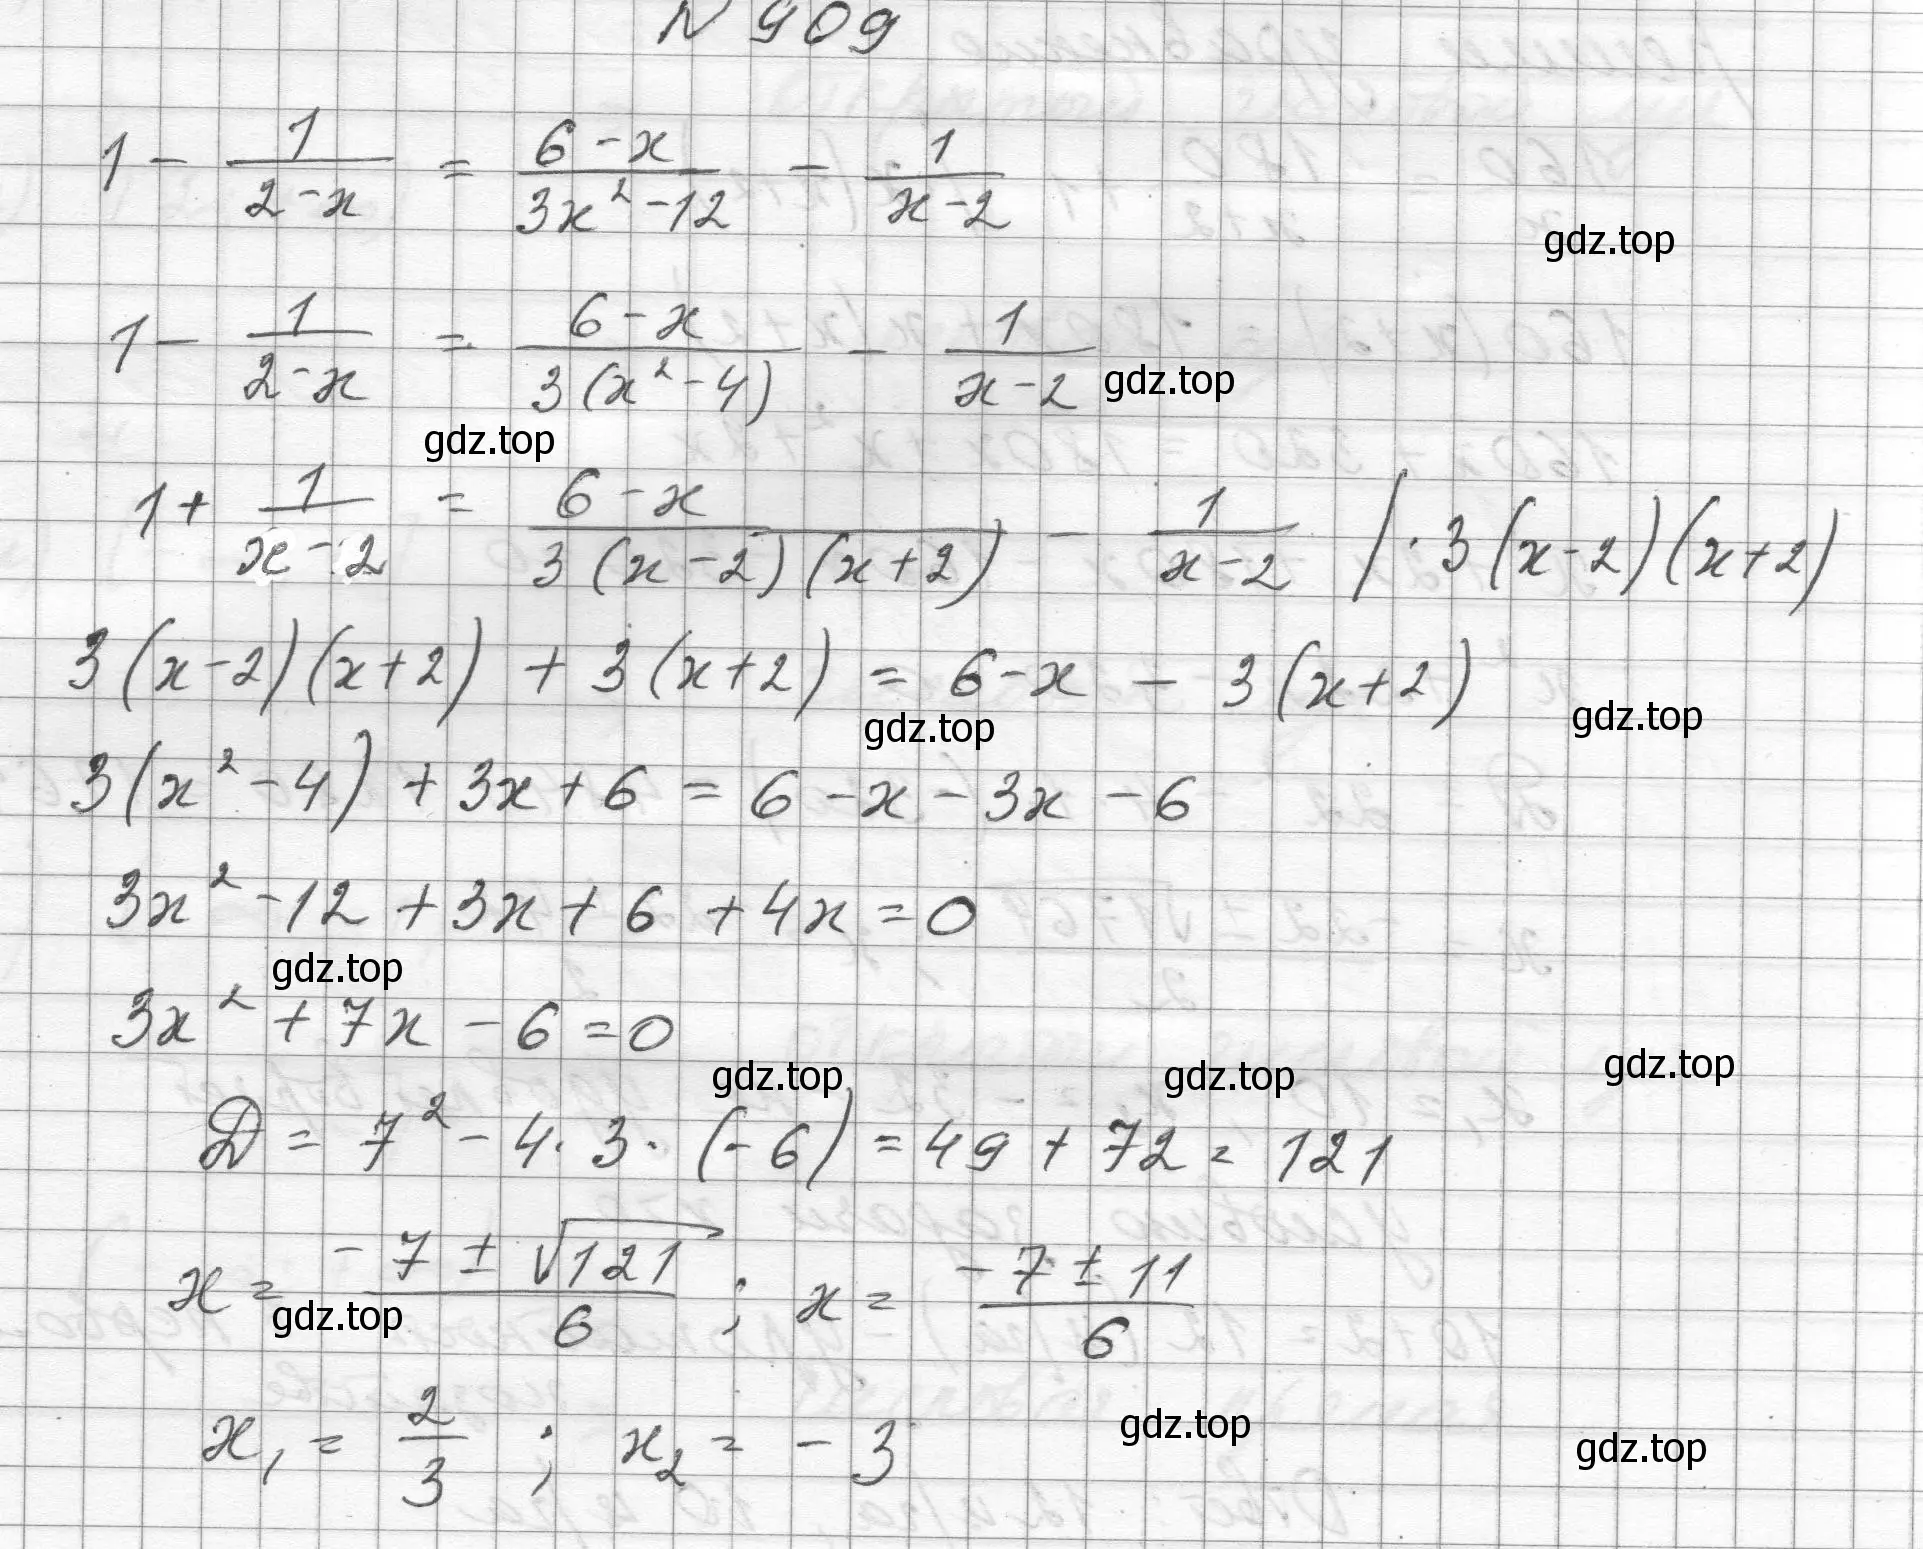 N 909
1 - 1/(2-x) = (6-x)/(3x²-12) - 1/(x-2)
gdz.top
1 - 1/(2-x) = (6-x)/(3(x²-4)) - 1/(x-2) gdz.top
gdz.top
1 + 1/(x-2) = (6-x)/(3(x-2)(x+2)) - 1/(x-2) / · 3(x-2)(x+2)
3(x-2)(x+2) + 3(x+2) = 6-x - 3(x+2)
gdz.top gdz.top
3(x²-4) + 3x + 6 = 6 - x - 3x - 6
3x² - 12 + 3x + 6 + 4x = 0
gdz.top
3x² + 7x - 6 = 0
gdz.top gdz.top gdz.top
D = 7² - 4 · 3 · (-6) = 49 + 72 = 121
x = (-7 ± √121)/6 ; x = (-7 ± 11)/6
gdz.top
x₁ = 2/3 ; x₂ = -3
gdz.top gdz.top